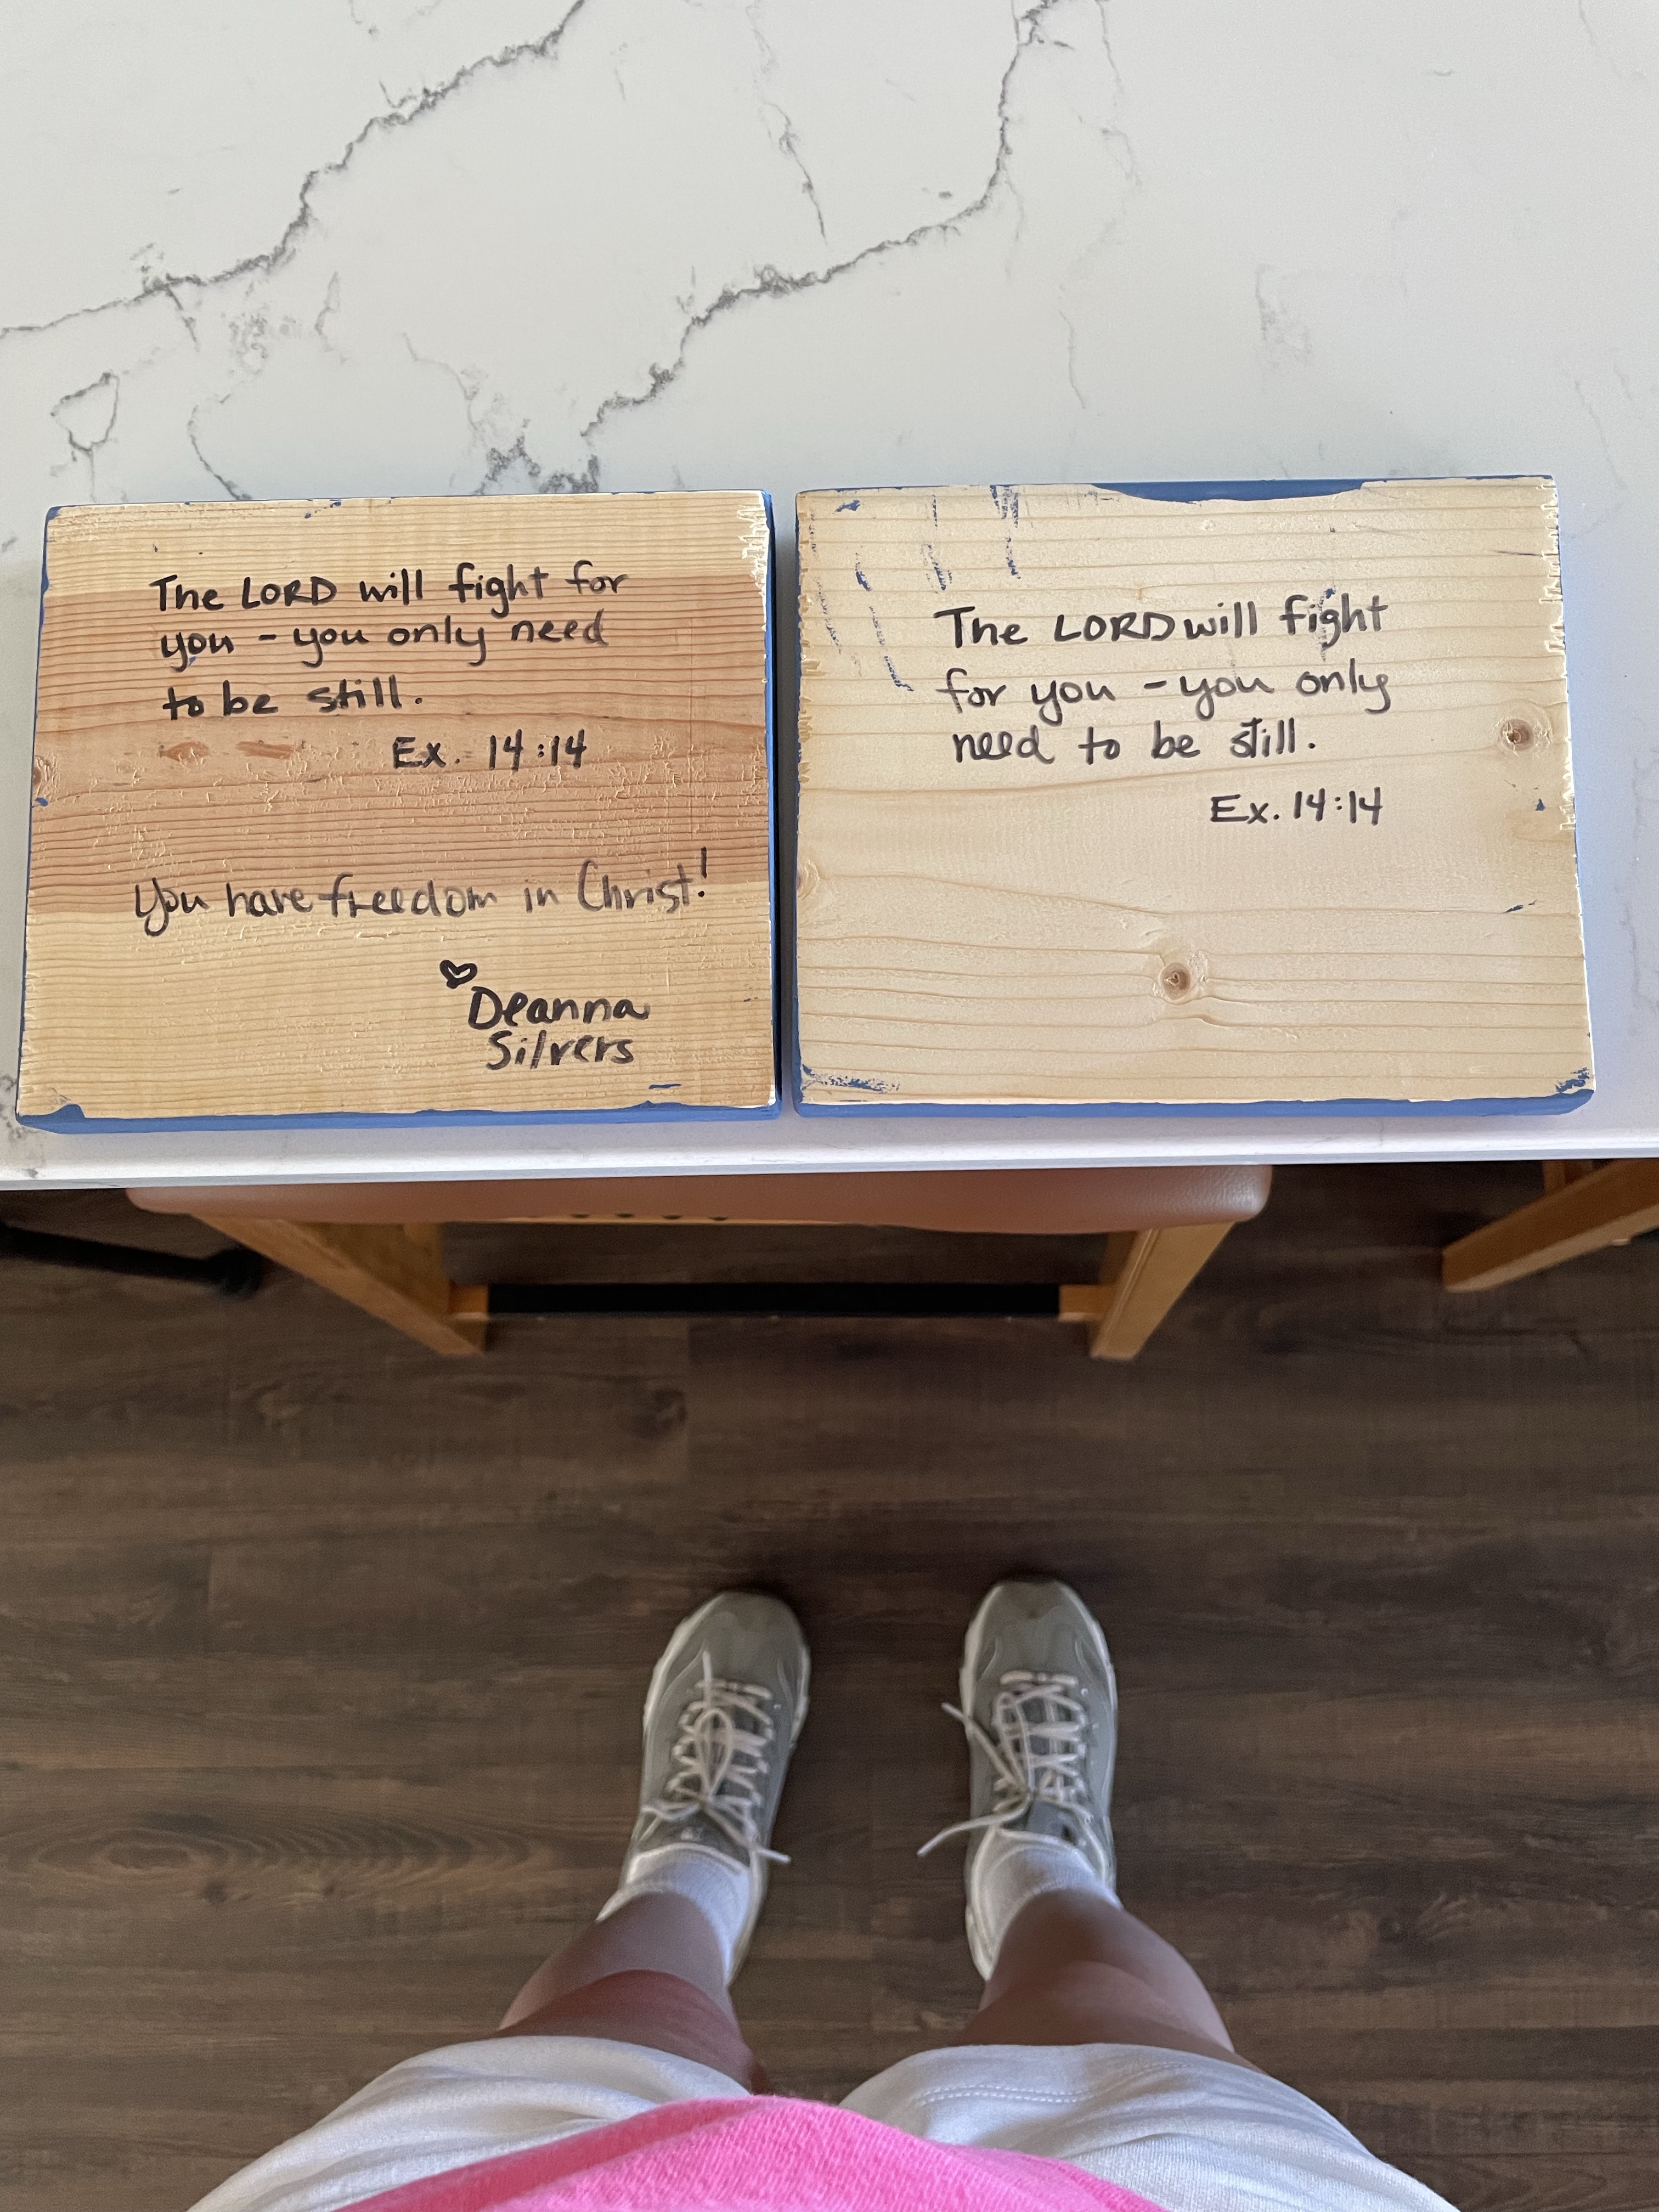 The LORD will fight for
you - you only need
to be still.
Ex. 14:14
You have freedom in Christ!
Deanna
Silvers
The LORD will fight
for you - you only
need to be still.
Ex. 14:14